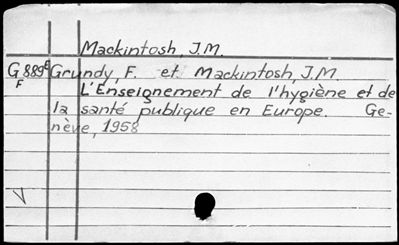 Mackintosh, J.M.
G 889E Grundy, F. et Mackintosh, J.M.
F L'Enseignement de l'hygiène et de
la santé publique en Europe. Ge-
nève, 1958
V